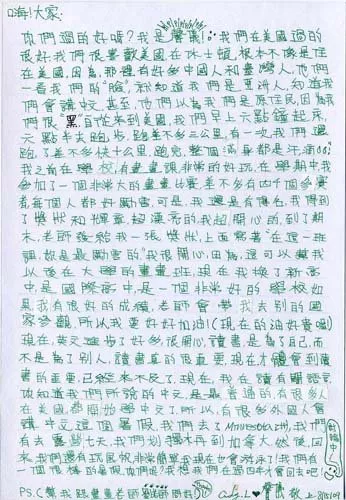 嗨!大家:
你們過的好嗎?我是
!我們在美國過的
很好,我們很喜歡美國在休士頓,根本不像是住
在美國,因為,那裡有好多中國人和臺灣人,他們
一看我們的"臉",就知道我們是亞洲人,知道我
們會講中文,甚至,他們以為我們是原住民,因為我
們很"黑",自從來到美國,我們早上六點鐘起床,
六點半去跑步,跑差不多三公里,有一次我們還
跑了差不多快十公里,跑完,整個滿身都是汗
我之前在學校,有畫畫課,非常的好玩,在學期中我
參加了一個非常大的畫畫比賽,差不多有四千個參賽
者,每個人都好厲害,可是,我還是有得名,我得到
了獎狀和輝章,超漂亮的,我超開心的,到了期
末,老師發給我一張獎狀,上面寫著"在這一班
調,你是最勵害的"我很開心,因為,這可以幫我
以後在大學的畫畫班,現在我換了新高
中,是國際高中,是一個非常好的學校,如
果我有很好的成績,老師會帶我去別的國
家參觀,所以我要好好加油!(現在的油好貴喔)
現在,英文進步了好多,很開心,讀書,是為了自己,而
不是為了別人,讀書真的很重要,現在才體會到讀
書的重要,已經來不及了,現在,我在讀有關語言
你知道我們所說的中文,是最普通的,有很多人
在美國,都開始學中文了,所以,有很多外國人會
講中文,這個暑假,我們去了MINNESOTA,我們
有去露營七天,我們划獨木舟到加拿大,然後,回
來我們還有玩風帆,非常非常我現在我成年了!我們有
一個很棒的暑假,你們呢?我想我們在四年才會回去吧!
P.S.(幫我跟畫畫老師
8/15/09